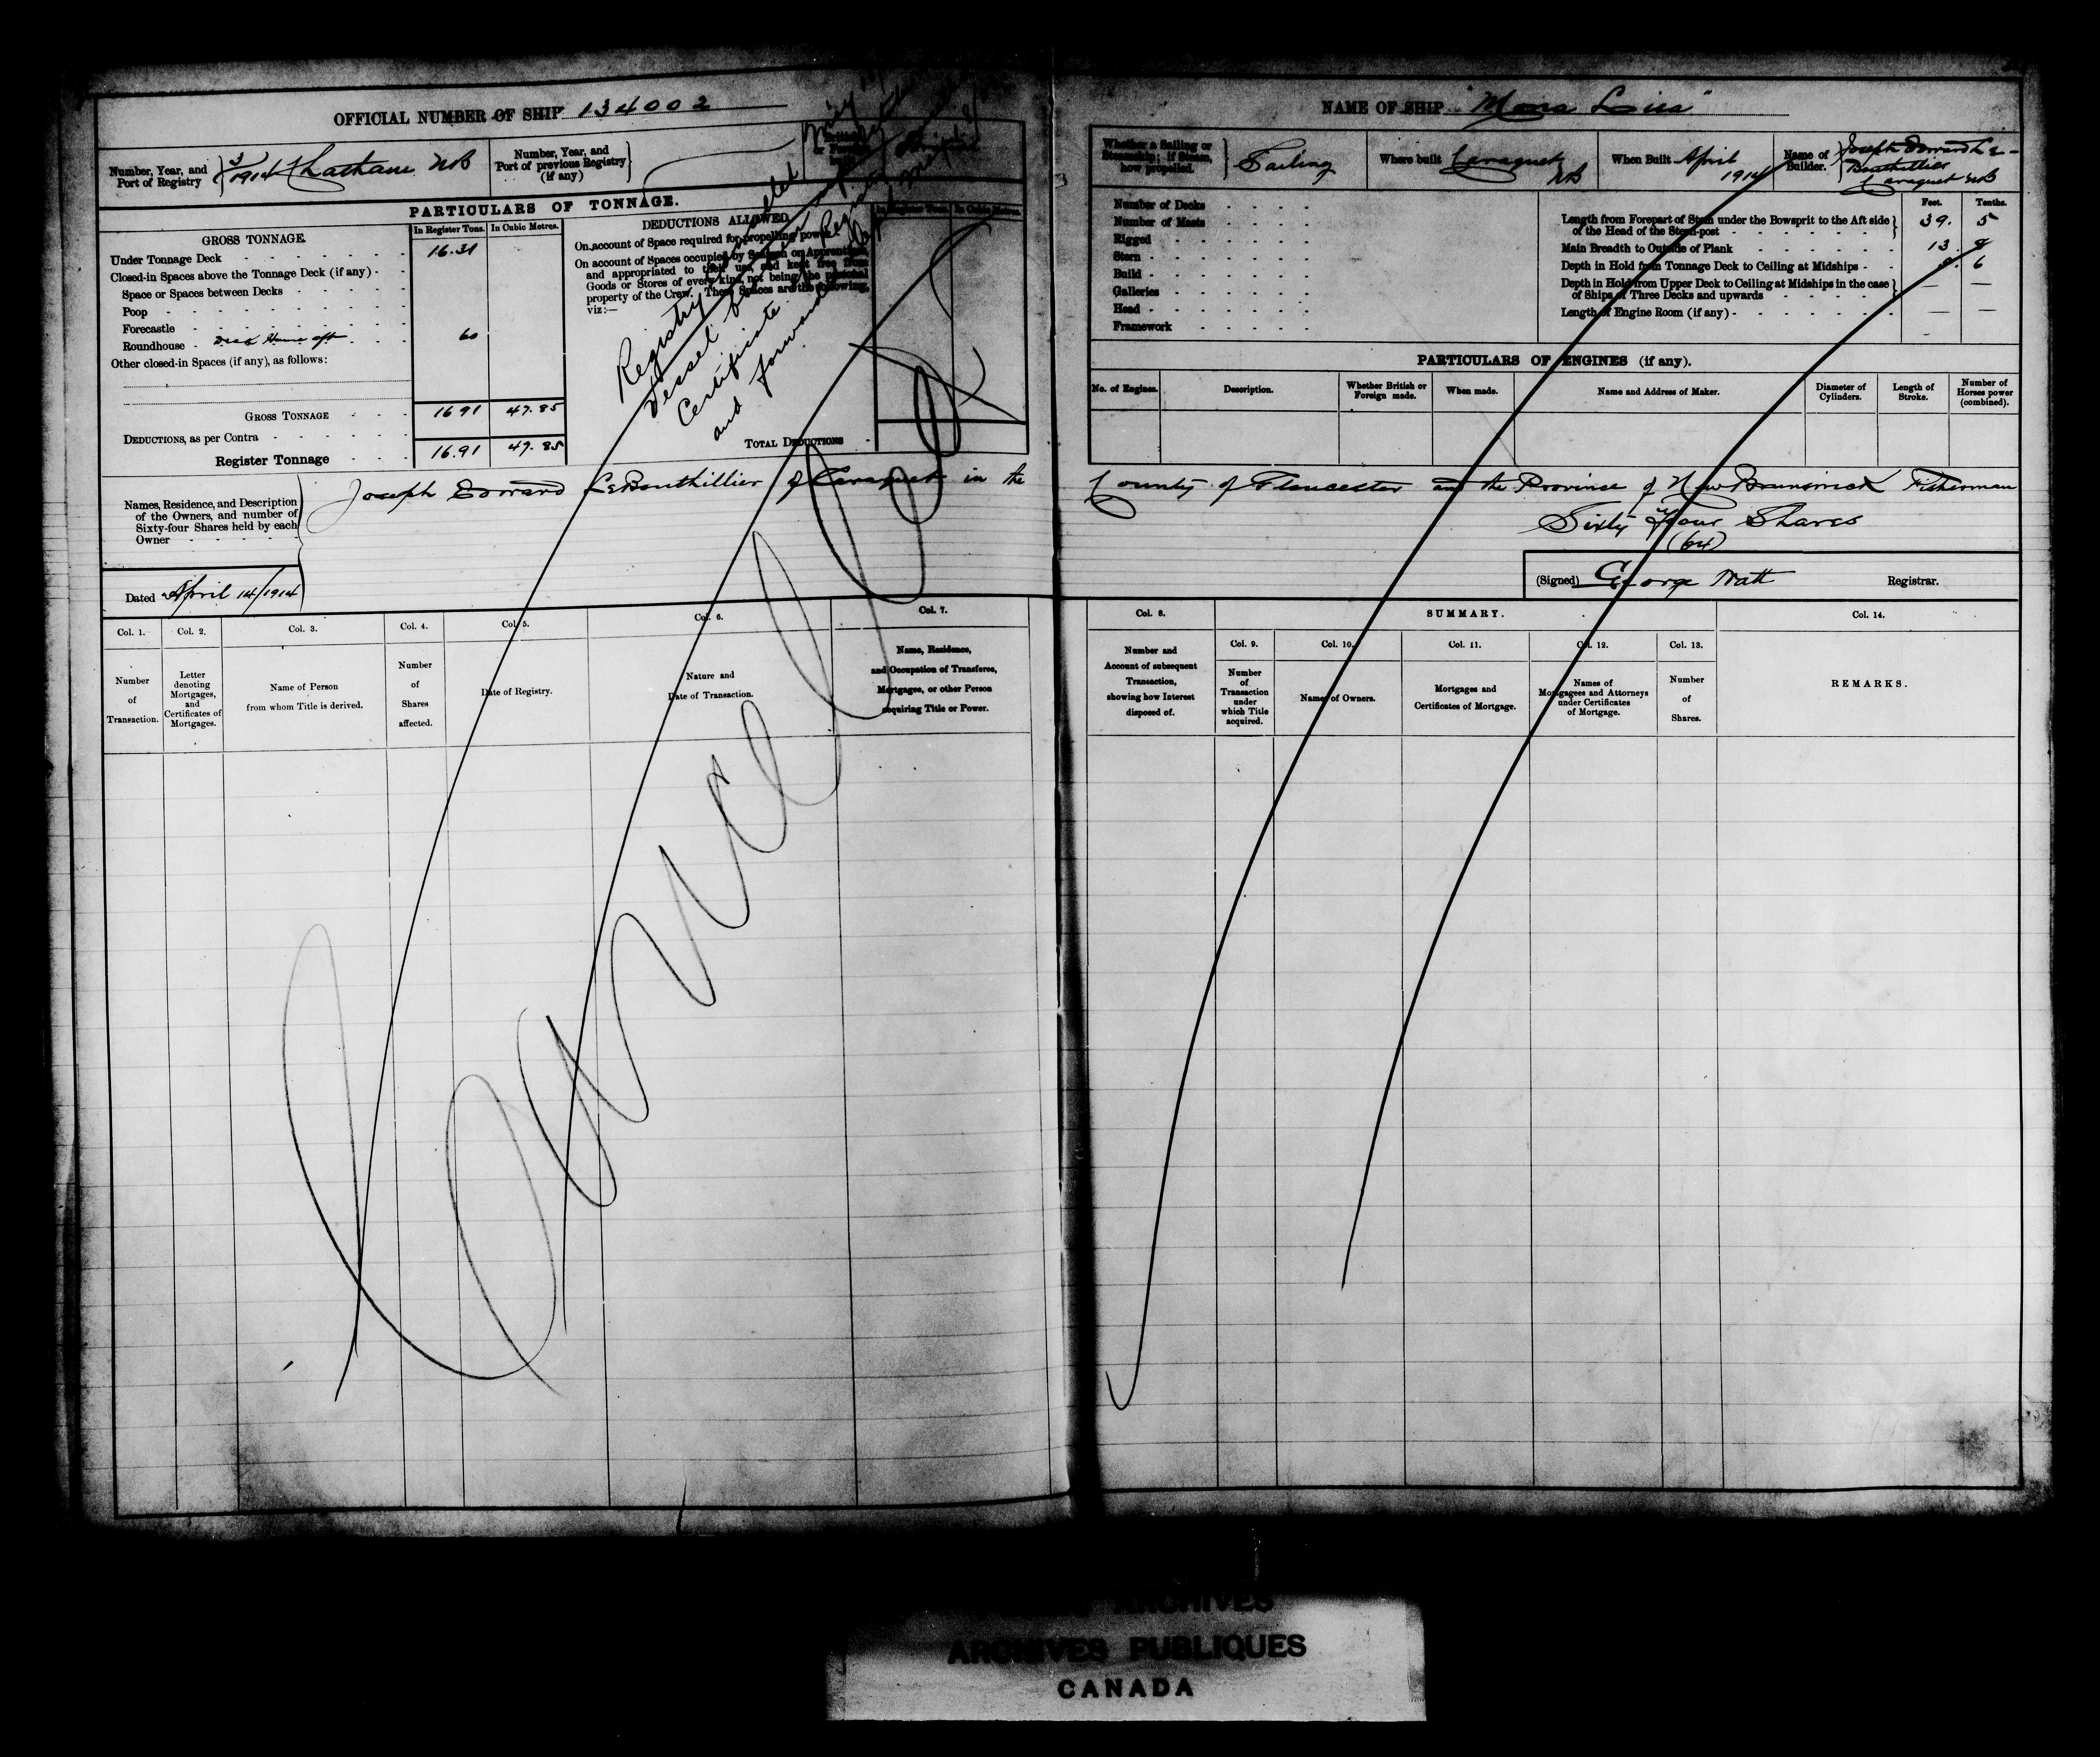 OFFICIAL NUMBER OF SHIP 134002
Number, Year, and Port of Registry 3/1914 Chatham NB
Number, Year, and Port of previous Registry (if any)
PARTICULARS OF TONNAGE.
GROSS TONNAGE.
In Register Tons. In Cubic Metres.
Under Tonnage Deck 16.31
Closed-in Spaces above the Tonnage Deck (if any)
Space or Spaces between Decks
Poop
Forecastle
Roundhouse Deck House aft 60
Other closed-in Spaces (if any), as follows:
GROSS TONNAGE 16 91 47.85
DEDUCTIONS, as per Contra
Register Tonnage 16.91 47.85
DEDUCTIONS ALLOWED
On account of Space required for propelling power
On account of Spaces occupied by Seamen or Apprentices,
and appropriated to their use, and kept free from
Goods or Stores of every kind, not being the personal
property of the Crew. These Spaces are the following,
viz:—
TOTAL DEDUCTIONS
In Cubic Metres.
Registry
Vessel
Certificate
and forwarded
Cancelled
Names, Residence, and Description
of the Owners, and number of
Sixty-four Shares held by each
Owner
Joseph Edward LeBouthillier of Caraquet in the
Dated April 14/1914
Col. 1. Number of Transaction.
Col. 2. Letter denoting Mortgages, and Certificates of Mortgages.
Col. 3. Name of Person from whom Title is derived.
Col. 4. Number of Shares affected.
Col. 5. Date of Registry.
Col. 6. Nature and Date of Transaction.
Col. 7. Name, Residence, and Occupation of Transferee, Mortgagee, or other Person acquiring Title or Power.
NAME OF SHIP "Mona Lisa"
Whether a Sailing or Steamship; if Steam, how propelled. Sailing
Where built Caraquet NB
When Built April 1914
Name of Builder. Joseph Edward Le-Bouthillier Caraquet NB
Number of Decks
Number of Masts
Rigged
Stern
Build
Galleries
Head
Framework
Feet. Tenths.
Length from Forepart of Stem under the Bowsprit to the Aft side of the Head of the Stern-post 39. 5
Main Breadth to Outside of Plank 13. 8
Depth in Hold from Tonnage Deck to Ceiling at Midships 6
Depth in Hold from Upper Deck to Ceiling at Midships in the case of Ships of Three Decks and upwards — —
Length of Engine Room (if any) — —
PARTICULARS OF ENGINES (if any).
No. of Engines.
Description.
Whether British or Foreign made.
When made.
Name and Address of Maker.
Diameter of Cylinders.
Length of Stroke.
Number of Horses power (combined).
County of Gloucester and the Province of New Brunswick Fisherman
Sixty Four Shares
(64)
(Signed) George Watt Registrar.
Col. 8. Number and Account of subsequent Transaction, showing how Interest disposed of.
SUMMARY.
Col. 9. Number of Transaction under which Title acquired.
Col. 10. Names of Owners.
Col. 11. Mortgages and Certificates of Mortgage.
Col. 12. Names of Mortgagees and Attorneys under Certificates of Mortgage.
Col. 13. Number of Shares.
Col. 14. REMARKS.
ARCHIVES
ARCHIVES PUBLIQUES
CANADA